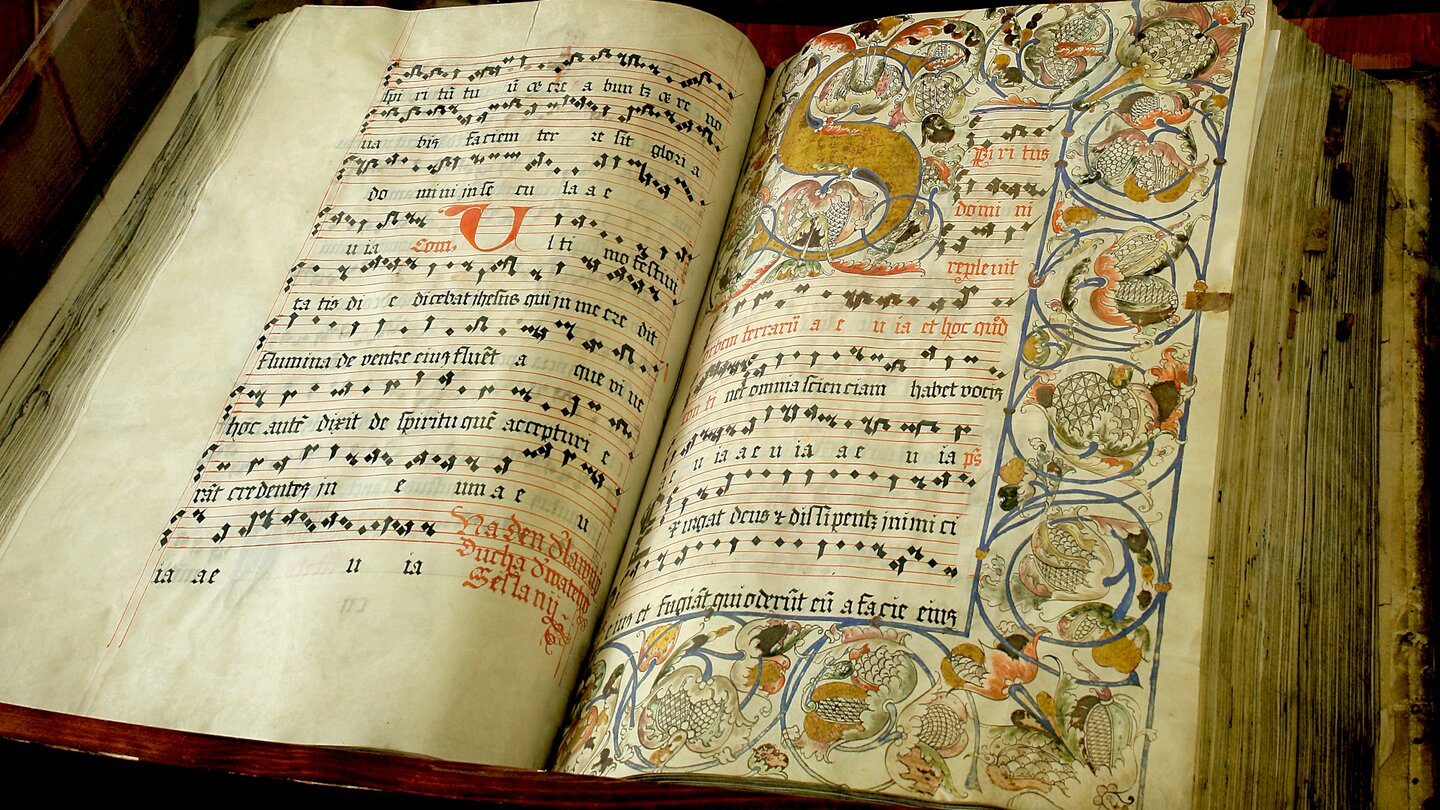 spi ri tū tu ū œ cre a bun tʒ œ re no
ua bis faciem ter re sit glori a
do mini in se cu la a e
u ia Com, U l ti mo festiui
ta tis di e dicebat jhesus qui jn me cre dit
flumina de ventre eiꝯ fluēt a que vi ue
hoc autē dixit de spiritu quē accepturi e
rāt credentes jn e um a e u
ia ae u ia
Na den
Ducha
Seslany
S piri tus
domi ni
repleuit
orbem terrarū a e u ia et hoc quod
con ti net omnia scien ciam habet vocis
u ia a e u ia a e u ia ps
Ex urgat deus et dissipentʒ jnimi ci
eius et fugiāt qui oderūt eū a facie eius